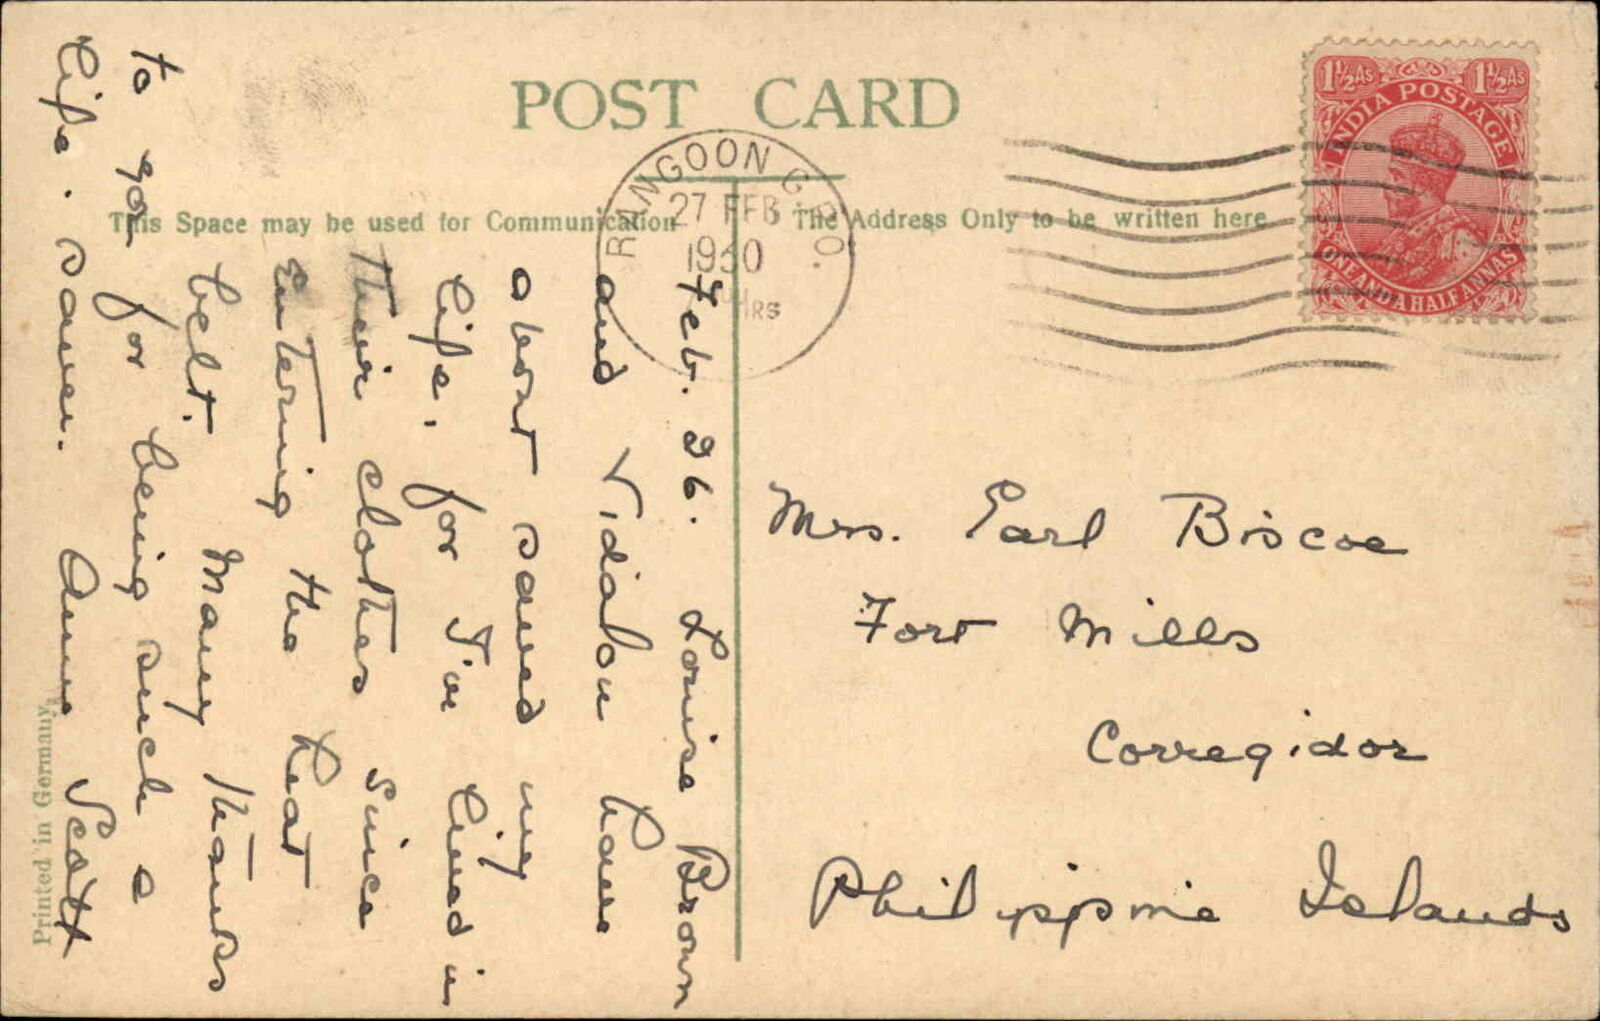 POST CARD
This Space may be used for Communication
The Address Only to be written here
RANGOON G.P.O.
27 FEB
1930
HRS
1½As 1½As
INDIA POSTAGE
ONE AND A HALF ANNAS
Feb. 26. Louise Brown
and Vidialou have
about saved my
life, for I've lived in
their clothes since
Entering the heat
belt. Many thanks
to you for being such a
life. saver. Anne Scott
Mrs. Earl Biscoe
Fort Mills
Corregidor
Philippine Islands
Printed in Germany.